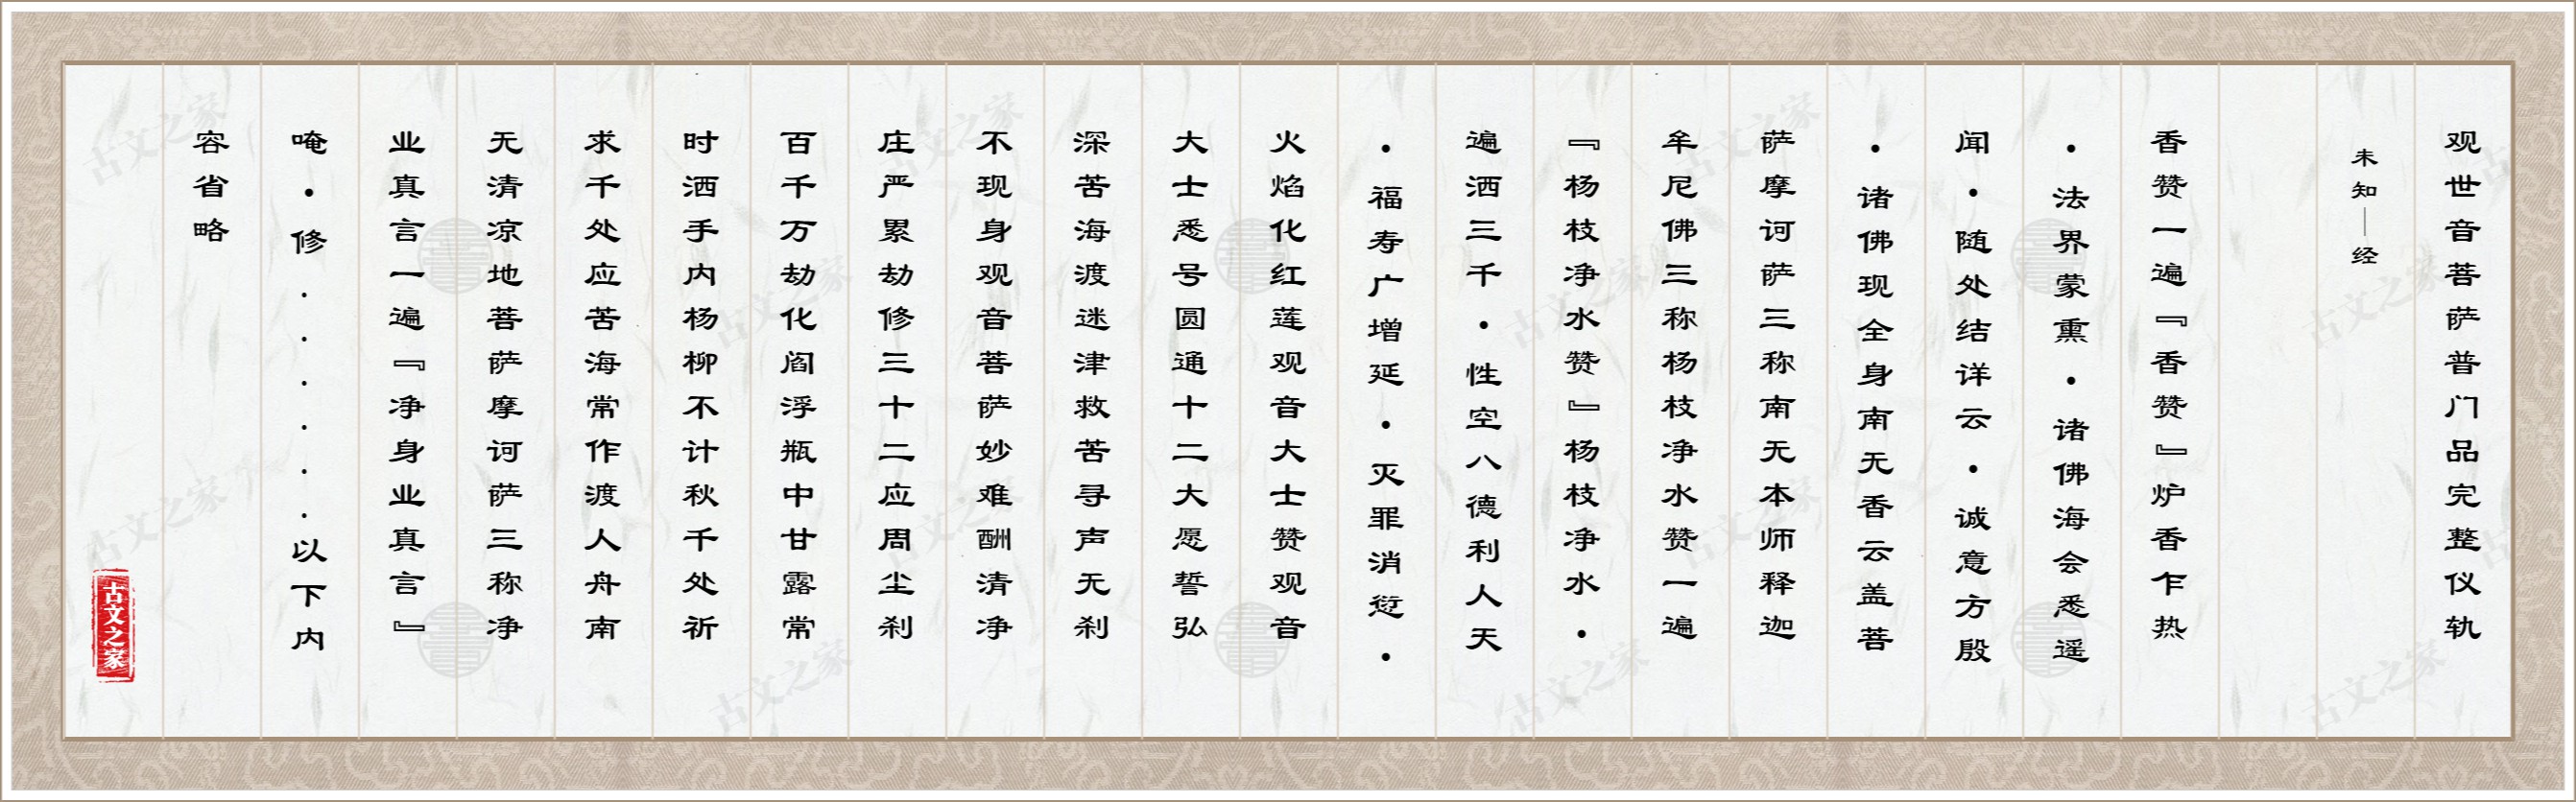 观世音菩萨普门品完整仪轨
未知—经
香赞一遍『香赞』炉香乍热
•法界蒙熏•诸佛海会悉遥
闻•随处结详云•诚意方殷
•诸佛现全身南无香云盖菩
萨摩诃萨三称南无本师释迦
牟尼佛三称杨枝净水赞一遍
『杨枝净水赞』杨枝净水•
遍洒三千•性空八德利人天
•福寿广增延•灭罪消愆•
火焰化红莲观音大士赞观音
大士悉号圆通十二大愿誓弘
深苦海渡迷津救苦寻声无刹
不现身观音菩萨妙难酬清净
庄严累劫修三十二应周尘刹
百千万劫化阎浮瓶中甘露常
时洒手内杨柳不计秋千处祈
求千处应苦海常作渡人舟南
无清凉地菩萨摩诃萨三称净
业真言一遍『净身业真言』
唵•修......以下内
容省略
古文之家